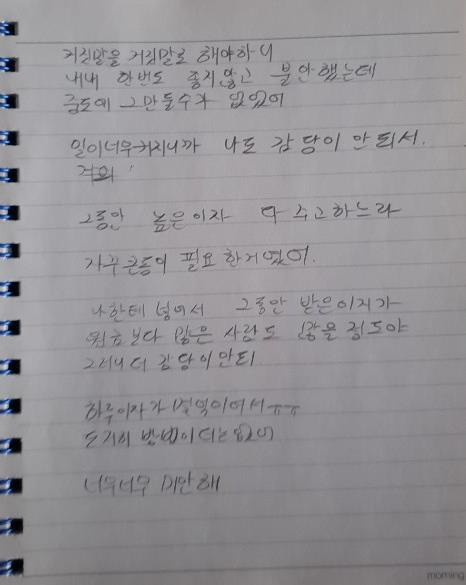 거짓말을 거짓말로 해야하니
내내 한번도 좋지않고 불안했는데
중도에 그만둘수가 없었어
일이너무커지니까 나도 감당이 안되서.
그동안 높은이자 다 주고하느라
자꾸큰돈이 필요한거였어.
나한테 넣어서 그동안 받은이자가
원금보다 많은 사람도 많을정도야
그러니 더 감당이안되
하루이자가 몇억이어서ㅠㅠ
도저히 방법이 더는없어
너무너무 미안해
morning